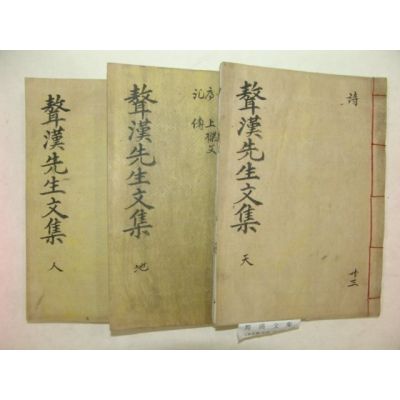 詩
聱漢先生文集
天
序 上樑文
記 傳
聱漢先生文集
地
聱漢先生文集
人